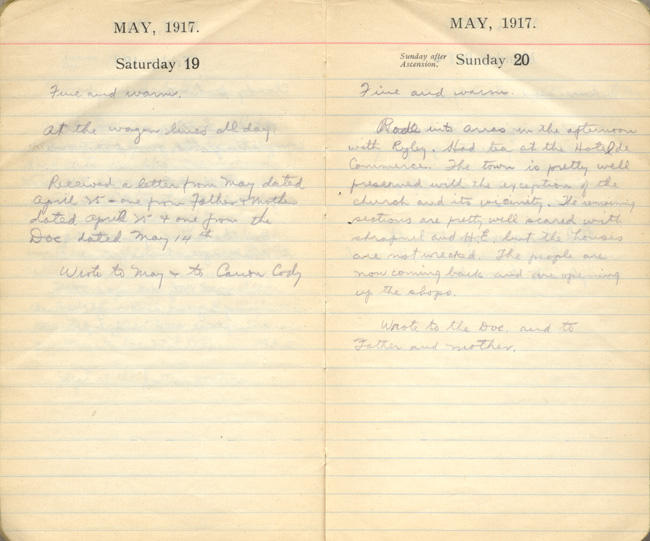 MAY, 1917.
Saturday 19
Fine and warm.
At the wagon lines all day.
Received a letter from May dated
April 25 & one from Father & Mother
dated April 25 & one from the
Doc. dated May 14th
Wrote to May & to Canon Cody
MAY, 1917.
Sunday after
Ascension.
Sunday 20
Fine and warm.
Rode into Arras in the afternoon
with Ryley. Had tea at the Hotel de
Commerce. The town is pretty well
preserved with the exception of the
church and its vicinity. The remaining
sections are pretty well scared with
shrapnel and H.E. but the houses
are not wrecked. The people are
now coming back and are opening
up the shops.
Wrote to the Doc. and to
Father and mother.